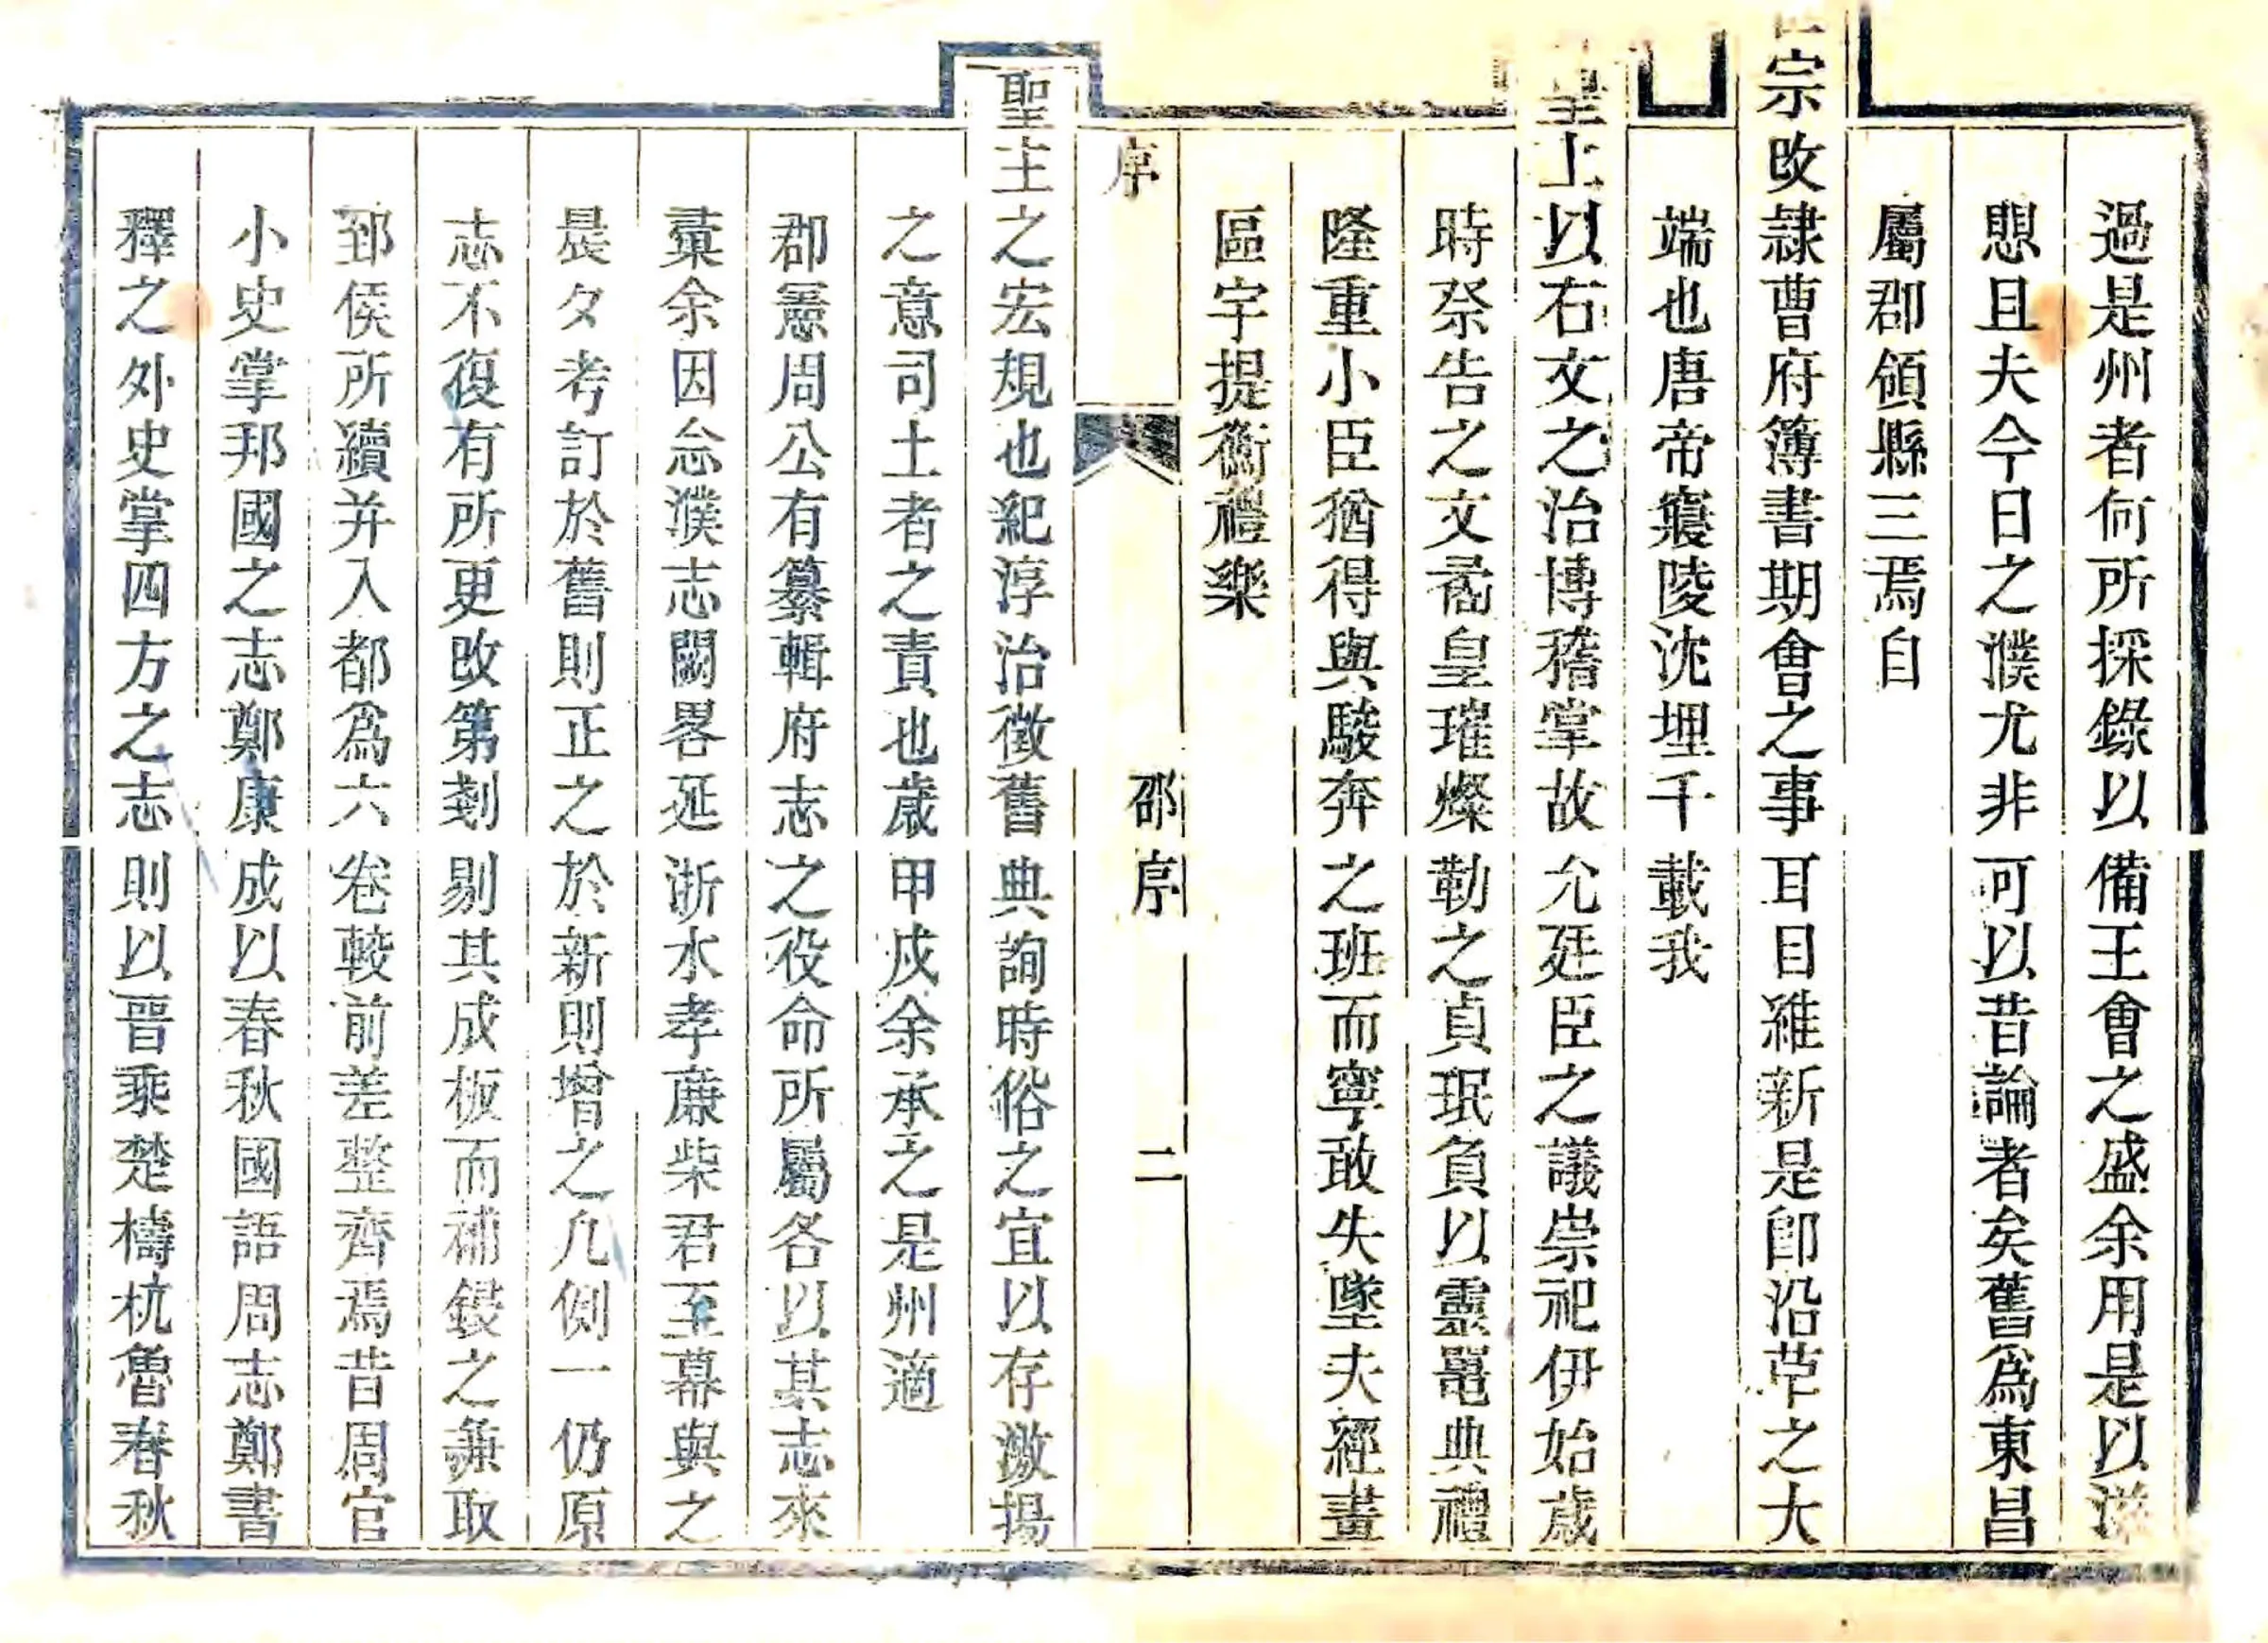 過是州者何所採錄以備王會之盛余用是以滋
惧且夫今日之濮尤非可以昔論者矣舊為東昌
屬郡領縣三焉自
宗改隷曹府簿書期會之事耳目維新是卽沿革之大
端也唐帝寢陵沈埋千載我
皇上以右文之治博稽掌故允廷臣之議崇祀伊始歲
時祭告之文矞皇璀燦勒之貞珉負以靈鼉典禮
隆重小臣猶得與駿奔之班而寧敢失墜夫經畫
區宇提衡禮樂
序
邵序
二
聖主之宏規也紀淳治徵舊典詢時俗之宜以存激揚
之意司土者之責也歲甲戌余承乏是州適
郡憲周公有纂輯府志之役命所屬各以其志來
彙余因念濮志闕畧延浙水孝廉柴君至幕與之
晨夕考訂於舊則正之於新則增之凡例一仍原
志不復有所更改第剗剔其成板而補鋟之兼取
郅侯所續并入都為六卷較前差整齊焉昔周官
小史掌邦國之志鄭康成以春秋國語周志鄭書
釋之外史掌四方之志則以晋乘楚檮杌魯春秋